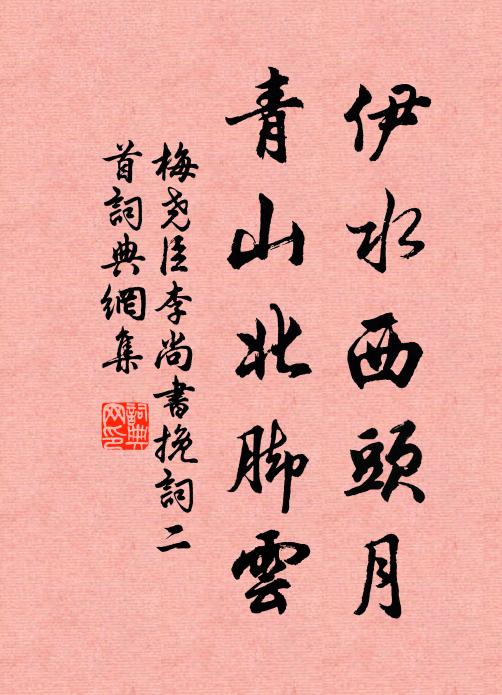 伊水西頭月
青山北脚雲
梅尧臣李尚書挽詞二
首詞典網集
詞典网印